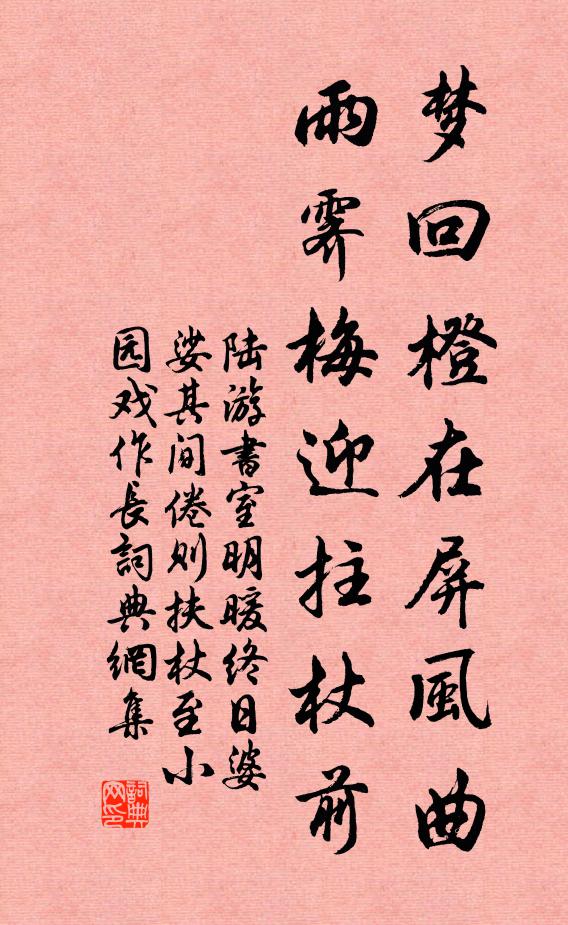 梦回橙在屏風曲
雨霁梅迎拄杖前
陆游書室明暖终日婆
娑其间倦则扶杖至小
园戏作長詞典網集
詞典
网印